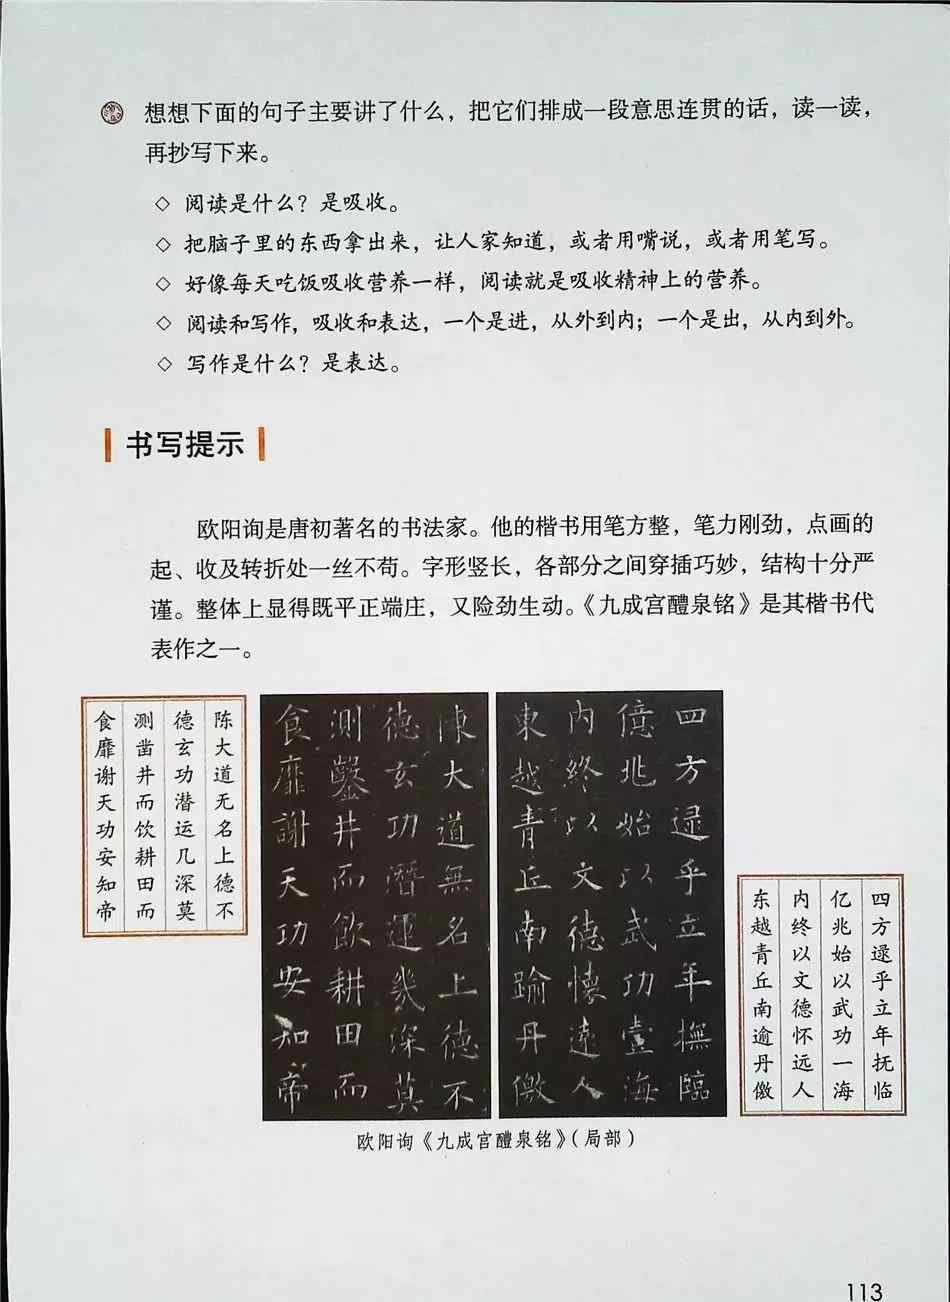 想想下面的句子主要讲了什么，把它们排成一段意思连贯的话，读一读，
再抄写下来。
◇ 阅读是什么？是吸收。
◇ 把脑子里的东西拿出来，让人家知道，或者用嘴说，或者用笔写。
◇ 好像每天吃饭吸收营养一样，阅读就是吸收精神上的营养。
◇ 阅读和写作，吸收和表达，一个是进，从外到内；一个是出，从内到外。
◇ 写作是什么？是表达。
书写提示
欧阳询是唐初著名的书法家。他的楷书用笔方整，笔力刚劲，点画的
起、收及转折处一丝不苟。字形竖长，各部分之间穿插巧妙，结构十分严
谨。整体上显得既平正端庄，又险劲生动。《九成宫醴泉铭》是其楷书代
表作之一。
四方逯乎立年抚临
亿兆始以武功一海
内终以文德怀远人
东越青丘南逾丹儌
四方逯乎立年撫臨
億兆始以武功壹海
内終以文德懷遠人
東越青丘南踰丹儌
陳大道無名上德不
德玄功潛運幾深莫
測鑿井而飲耕田而
食靡謝天功安知帝
陈大道无名上德不
德玄功潜运几深莫
测凿井而饮耕田而
食靡谢天功安知帝
欧阳询《九成宫醴泉铭》（局部）
113